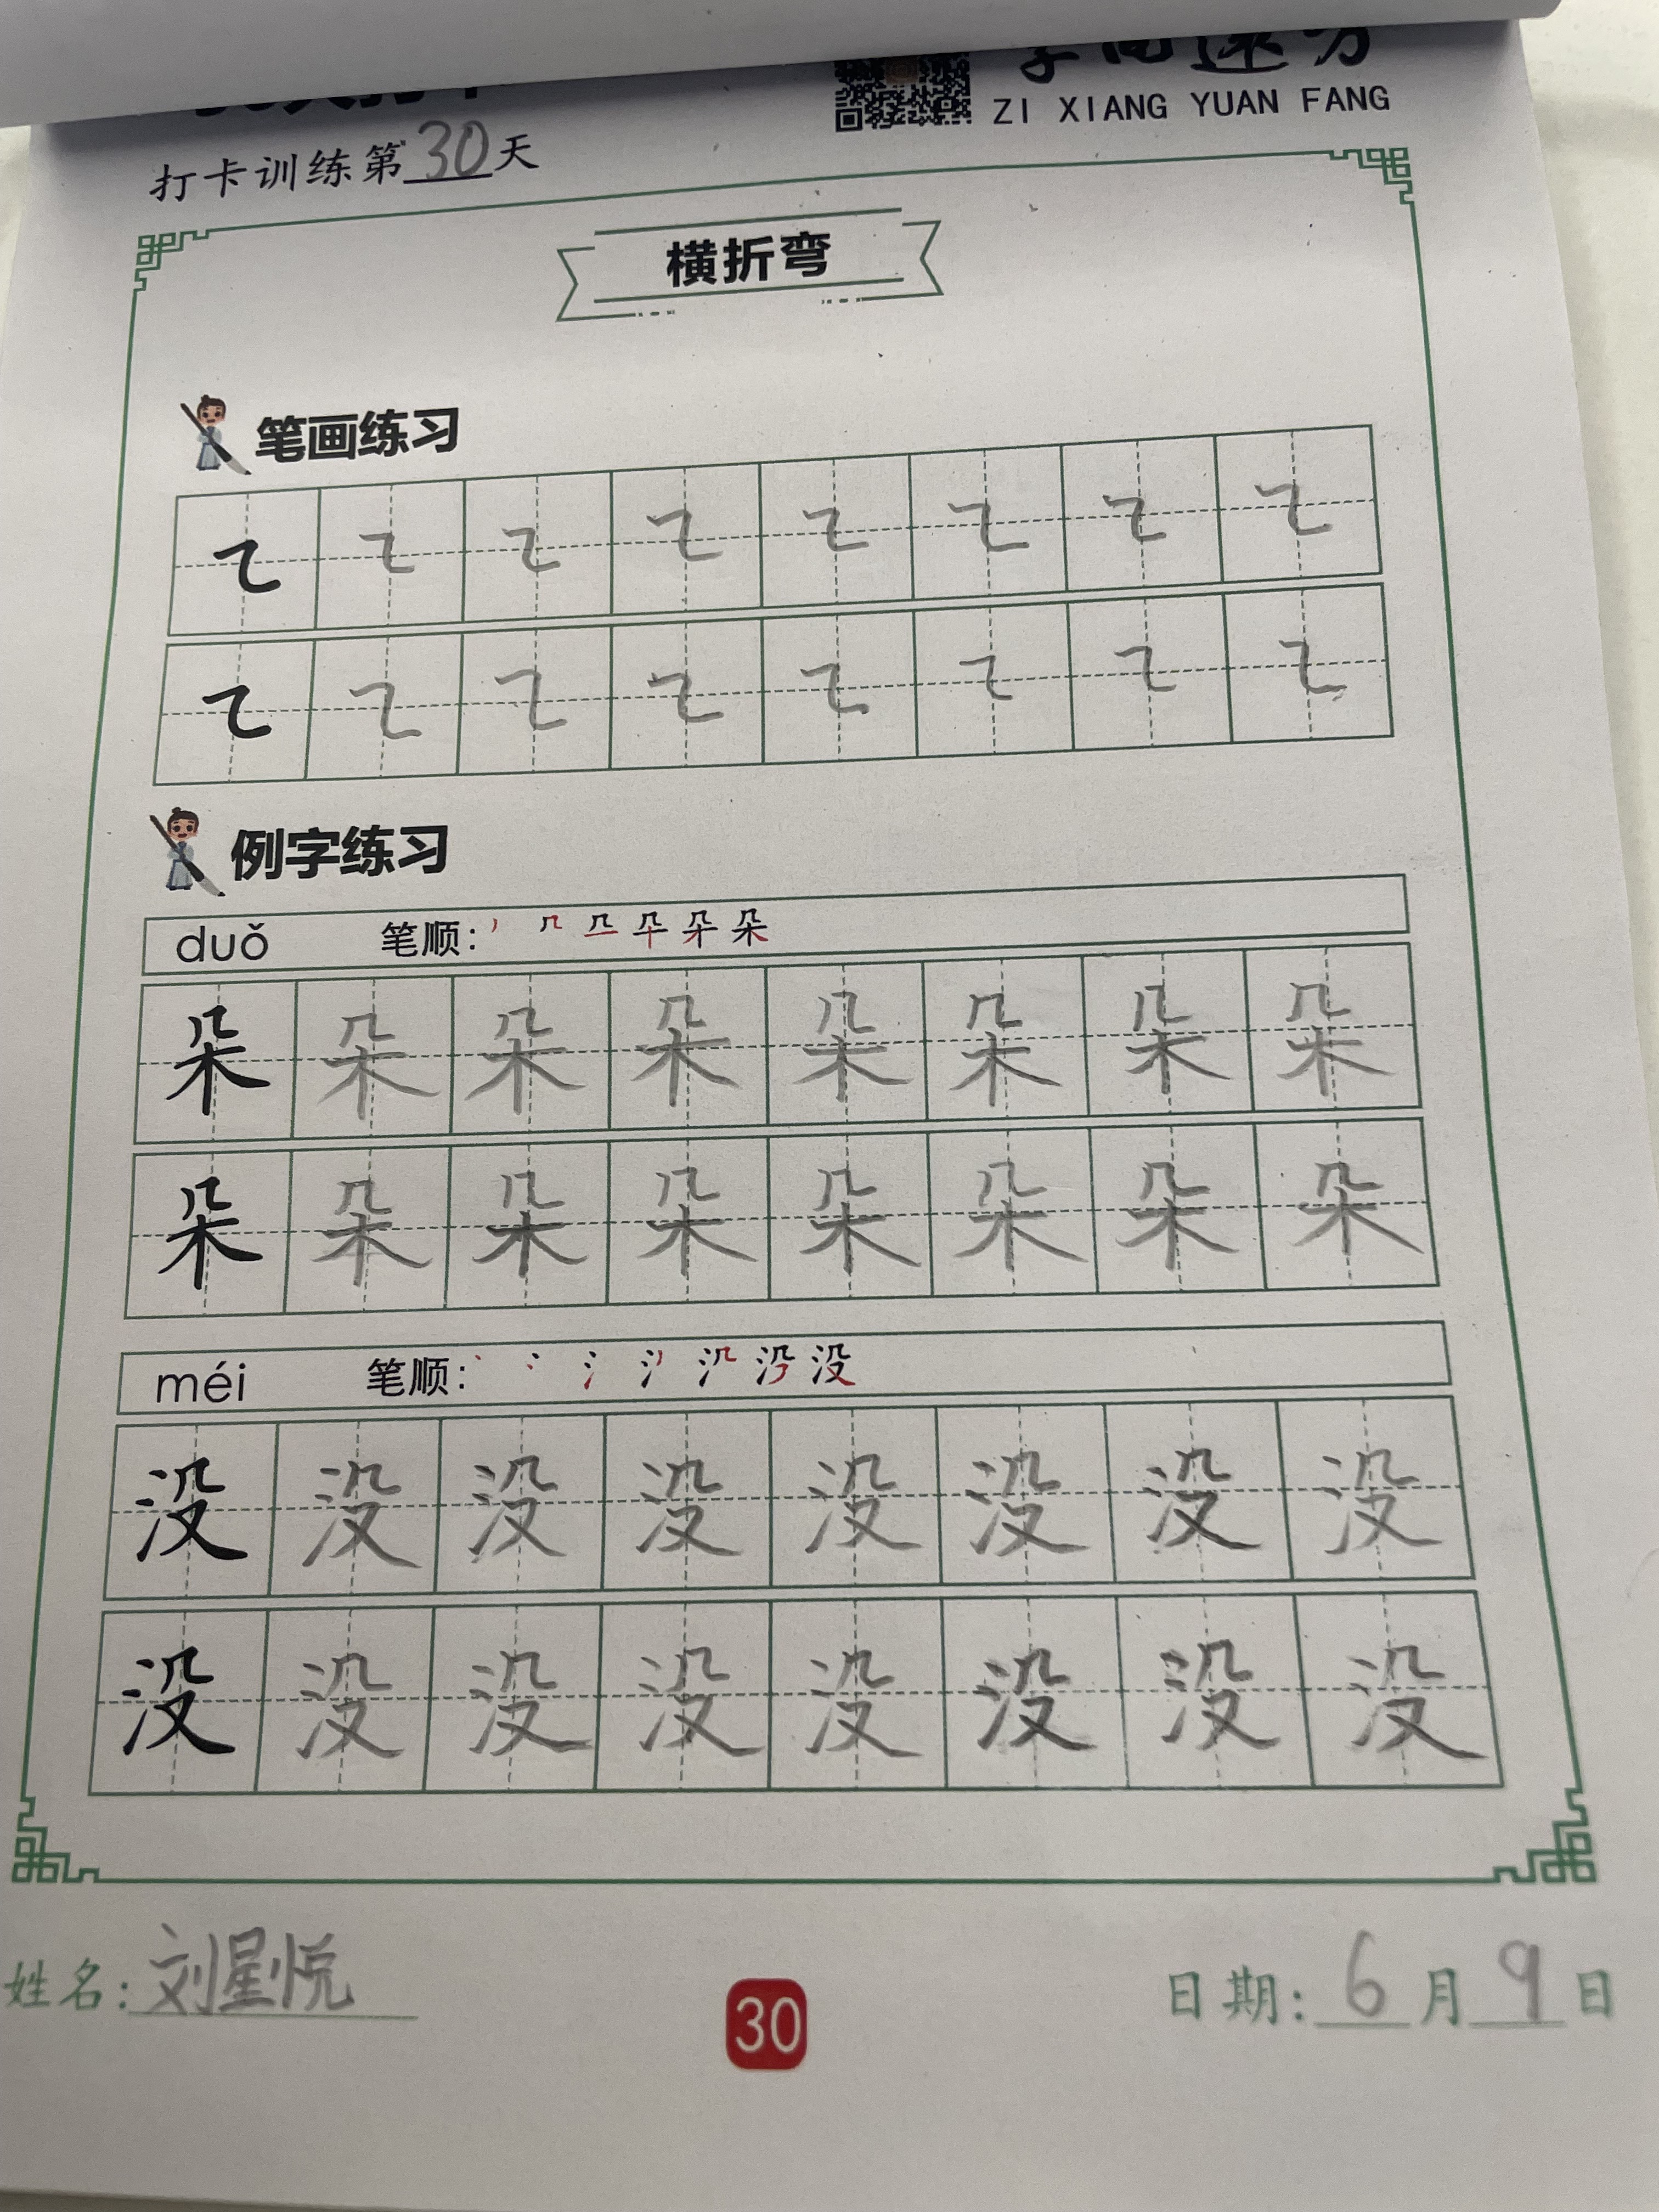 ZI XIANG YUAN FANG
打卡训练第30天
横折弯
笔画练习
例字练习
duǒ 笔顺:
朵 朵 朵 朵 朵 朵 朵 朵
朵 朵 朵 朵 朵 朵 朵 朵
méi 笔顺:
没 没 没 没 没 没 没 没
没 没 没 没 没 没 没 没
姓名:刘星悦
30
日期:6月9日